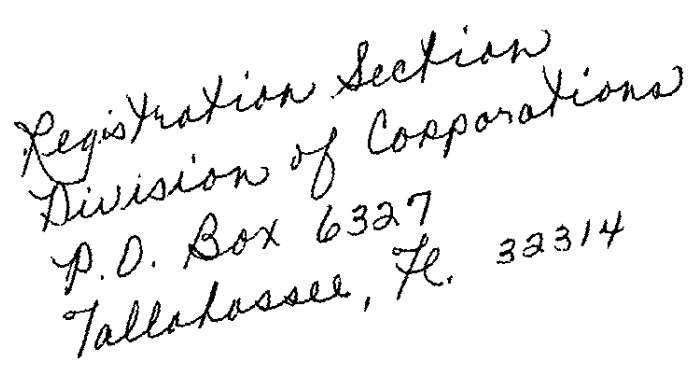 Registration Section
Division of Corporations
P.O. Box 6327
Tallahassee, Fl. 32314